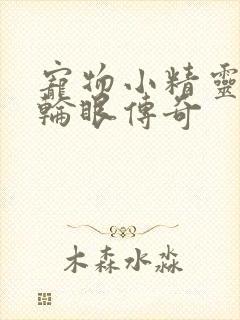 寵物小精靈
輪眼傳奇
木森水淼